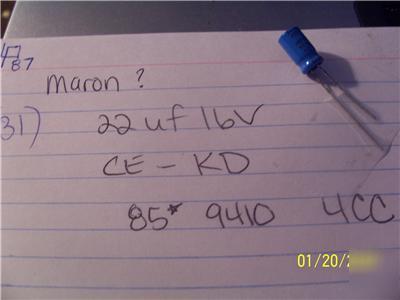 87
maron ?
31) 22 uf 16V
CE - KD
85* 9410 4CC
01/20/2